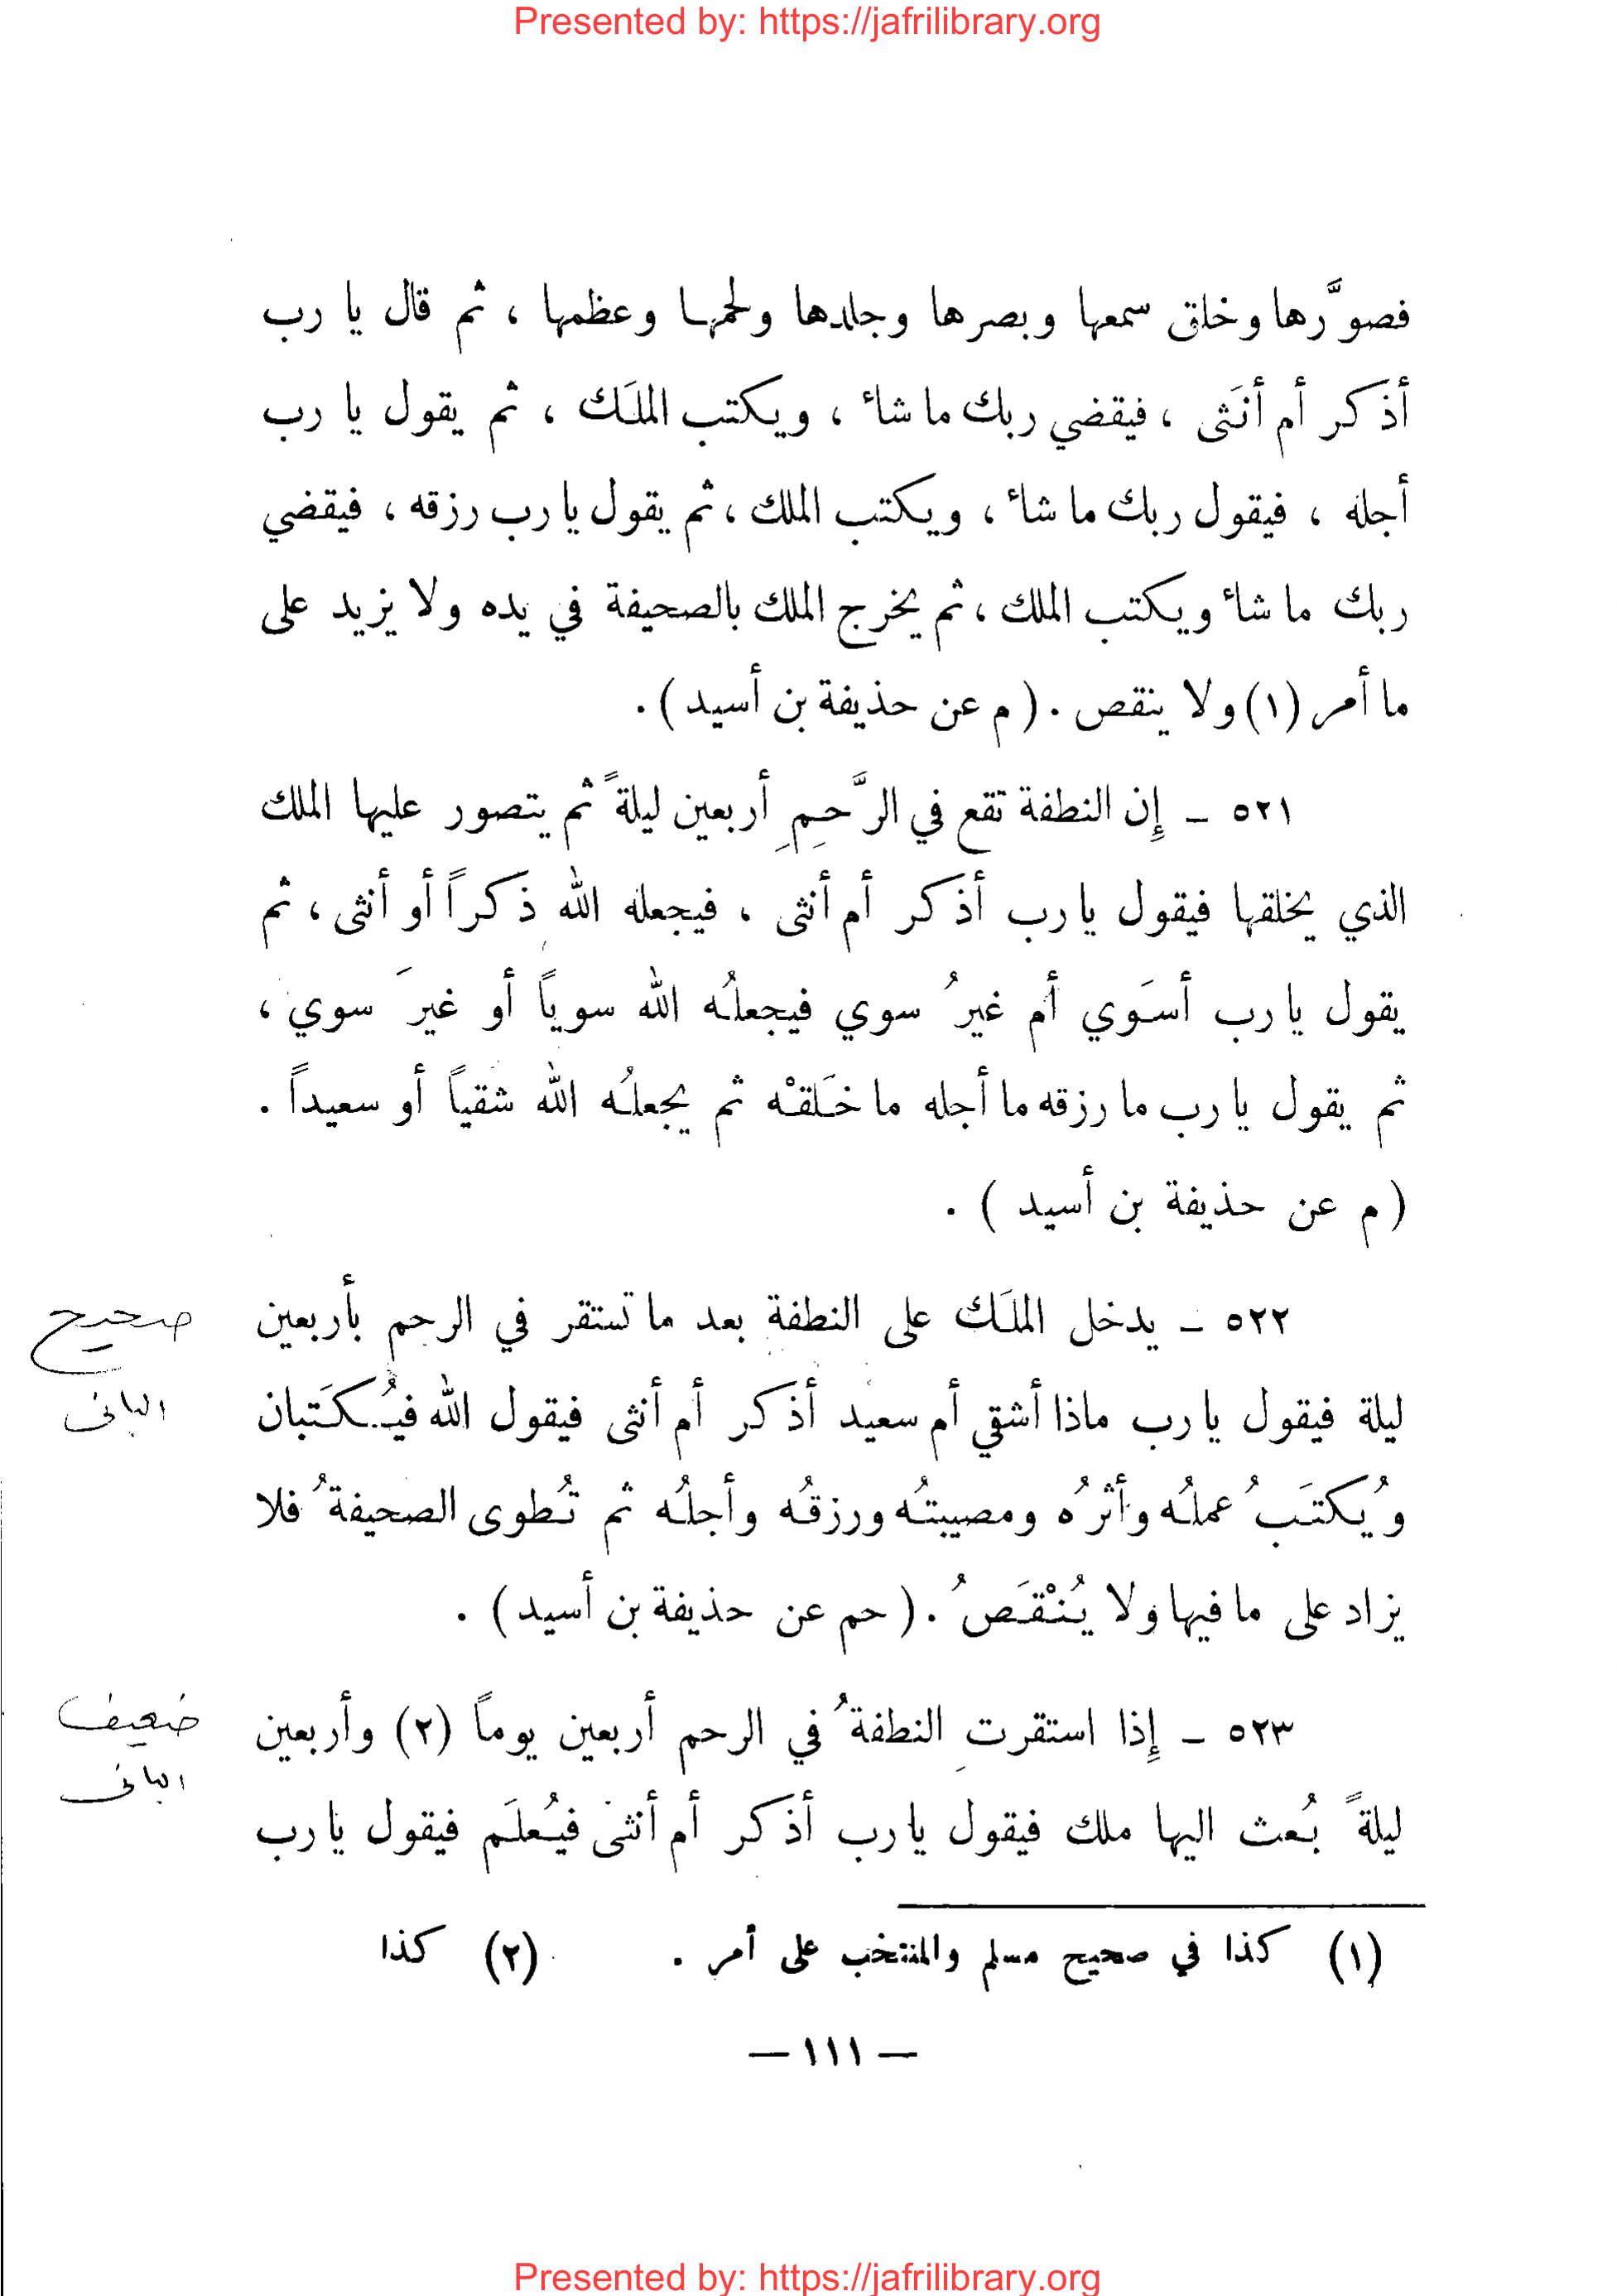 Presented by: https://jafrilibrary.org
فصوَّرها وخلق سمعها وبصرها وجلدها ولحمها وعظمها ، ثم قال يا رب
أذكر أم أنَثى ، فيقضي ربك ما شاء ، ويكتب الملَك ، ثم يقول يا رب
أجله ، فيقول ربك ما شاء ، ويكتب الملك ، ثم يقول يا رب رزقه ، فيقضي
ربك ما شاء ويكتب الملك ، ثم يخرج الملك بالصحيفة في يده ولا يزيد على
ما أمر (١) ولا ينقص . ( م عن حذيفة بن أسيد ) .
٥٢١ ـ إِن النطفة تقع في الرَّحِمِ أربعين ليلةً ثم يتصور عليها الملك
الذي يخلقها فيقول يا رب أذكر أم أنثى ، فيجعله الله ذكراً أو أنثى ، ثم
يقول يا رب أسَوي أم غيرُ سوي فيجعلُه الله سوياً أو غيرَ سوي ،
ثم يقول يا رب ما رزقه ما أجله ما خَلقْه ثم يجعلُه الله شقياً أو سعيداً .
( م عن حذيفة بن أسيد ) .
٥٢٢ ـ يدخل الملَك على النطفة بعد ما تستقر في الرحم بأربعين
ليلة فيقول يا رب ماذا أشقي أم سعيد أذكر أم أنثى فيقول الله فيُكتَبان
ويُكتَبُ عملُه وأثرُه ومصيبتُه ورزقُه وأجلُه ثم تُطوى الصحيفةُ فلا
يزاد على ما فيها ولا يُنْقَصُ . ( حم عن حذيفة بن أسيد ) .
صحيح
البانى
٥٢٣ ـ إِذا استقرتِ النطفةُ في الرحم أربعين يوماً (٢) وأربعين
ليلةً بُعث اليها ملك فيقول يا رب أذكر أم أنثى فيُعلَم فيقول يا رب
ضعيف
البانى
(١) كذا في صحيح مسلم والمنتخب على أمر . (٢) كذا
— ١١١ —
Presented by: https://jafrilibrary.org